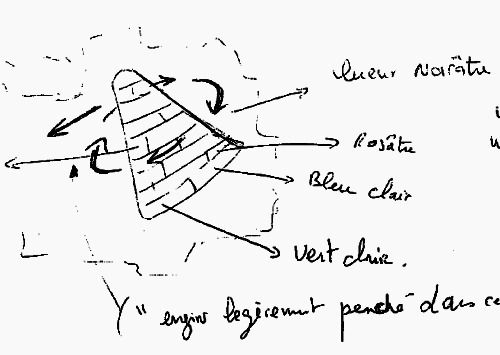 lueur rosâtre
Rosâtre
Bleu clair
Vert clair.
" engin legèrement penché dans ce